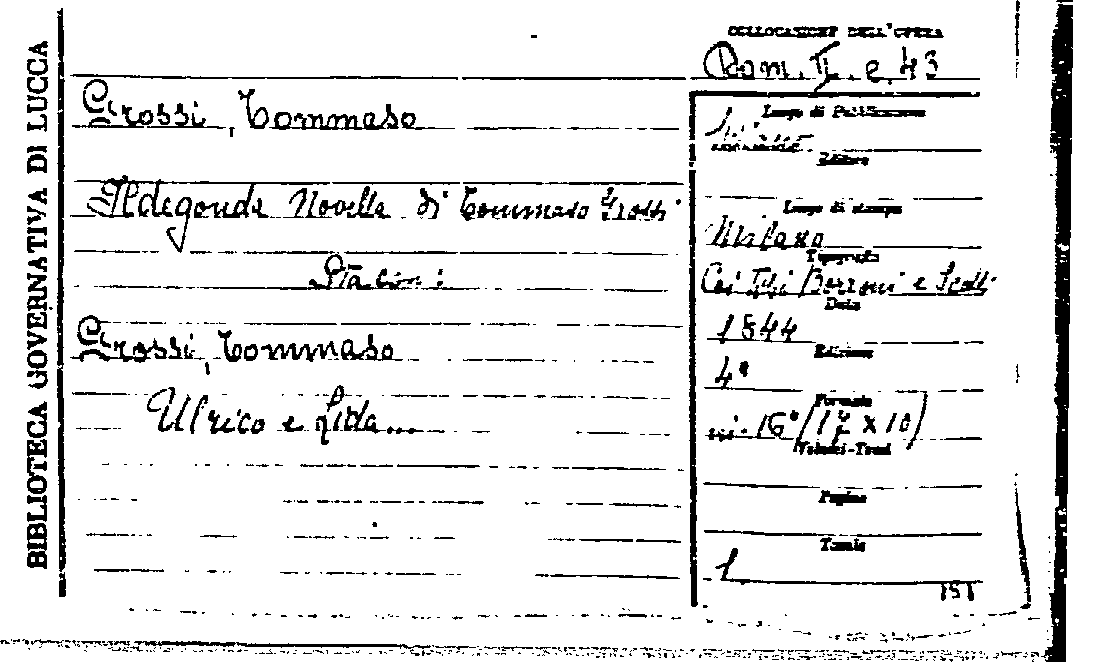 BIBLIOTECA GOVERNATIVA DI LUCCA
COLLOCAZIONE DELL'OPERA
Rom. II. e. 43
Grossi, Tommaso
Ildegonda Novella di Tommaso Grossi
Sta con:
Grossi, Tommaso
Ulrico e Lida...
Luogo di Pubblicazione
Editore
Luogo di stampa
Milano
Tipografo
Coi Tipi Borroni e Scotti
Data
1844
Edizione
4ª
Formato
in-16° (17 x 10)
Volumi-Tomi
Pagine
Tavole
1
151